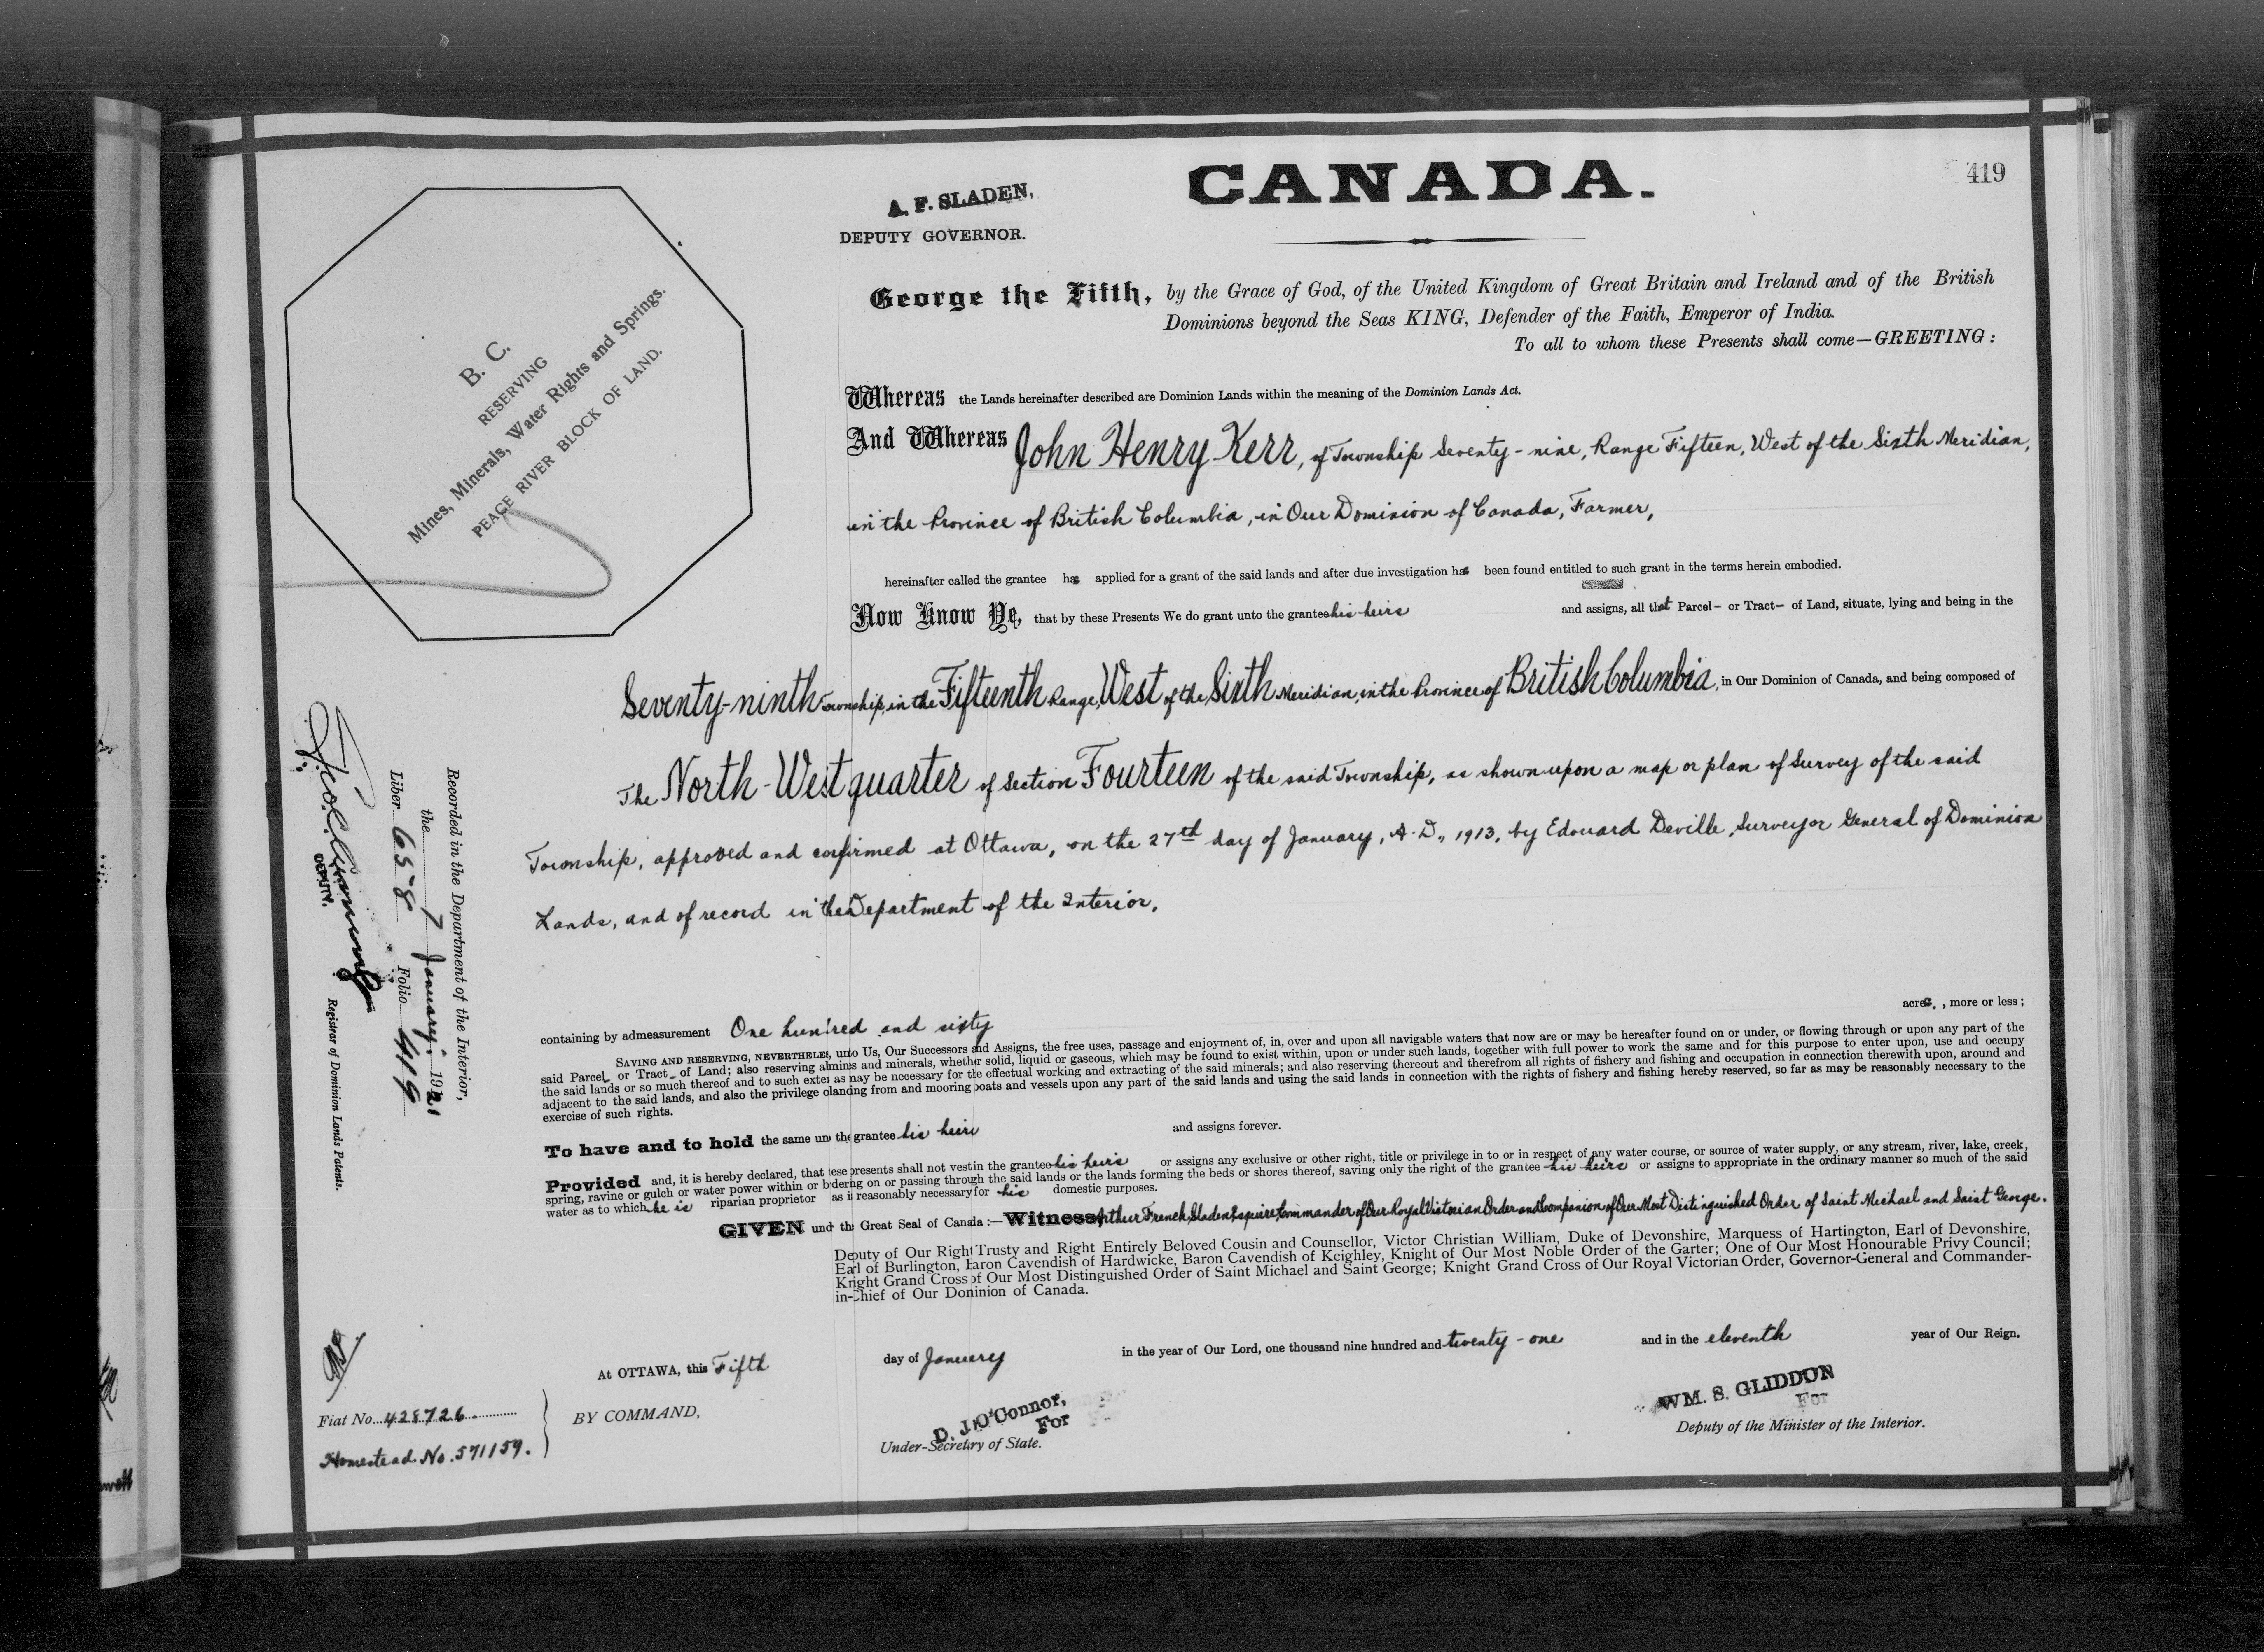 419
CANADA.
A. F. SLADEN,
DEPUTY GOVERNOR.
George the Fifth, by the Grace of God, of the United Kingdom of Great Britain and Ireland and of the British
Dominions beyond the Seas KING, Defender of the Faith, Emperor of India.
To all to whom these Presents shall come—GREETING:
B. C.
RESERVING
Mines, Minerals, Water Rights and Springs.
PEACE RIVER BLOCK OF LAND.
Whereas the Lands hereinafter described are Dominion Lands within the meaning of the Dominion Lands Act.
And Whereas John Henry Kerr, of Township Seventy-nine, Range Fifteen, West of the Sixth Meridian,
in the Province of British Columbia, in Our Dominion of Canada, Farmer,
hereinafter called the grantee has applied for a grant of the said lands and after due investigation has been found entitled to such grant in the terms herein embodied.
Now Know Ye, that by these Presents We do grant unto the grantee his heirs and assigns, all that Parcel - or Tract - of Land, situate, lying and being in the
Seventy-ninth Township, in the Fifteenth Range, West of the Sixth Meridian, in the Province of British Columbia, in Our Dominion of Canada, and being composed of
The North-West quarter of Section Fourteen of the said Township, as shown upon a map or plan of Survey of the said
Township, approved and confirmed at Ottawa, on the 27th day of January, A.D., 1913, by Edouard Deville, Surveyor General of Dominion
Lands, and of record in the Department of the Interior.
containing by admeasurement One hundred and sixty acres, more or less;
SAVING AND RESERVING, NEVERTHELES, unto Us, Our Successors and Assigns, the free uses, passage and enjoyment of, in, over and upon all navigable waters that now are or may be hereafter found on or under, or flowing through or upon any part of the
said Parcel - or Tract - of Land; also reserving all mines and minerals, whether solid, liquid or gaseous, which may be found to exist within, upon or under such lands, together with full power to work the same and for this purpose to enter upon, use and occupy
the said lands or so much thereof and to such extent as may be necessary for the effectual working and extracting of the said minerals; and also reserving thereout and therefrom all rights of fishery and fishing and occupation in connection therewith upon, around and
adjacent to the said lands, and also the privilege of landing from and mooring boats and vessels upon any part of the said lands and using the said lands in connection with the rights of fishery and fishing hereby reserved, so far as may be reasonably necessary to the
exercise of such rights.
To have and to hold the same unto the grantee his heirs and assigns forever.
Provided and, it is hereby declared, that these presents shall not vest in the grantee his heirs or assigns any exclusive or other right, title or privilege in to or in respect of any water course, or source of water supply, or any stream, river, lake, creek,
spring, ravine or gulch or water power within or bordering on or passing through the said lands or the lands forming the beds or shores thereof, saving only the right of the grantee his heirs or assigns to appropriate in the ordinary manner so much of the said
water as to which he is riparian proprietor as is reasonably necessary for his domestic purposes.
GIVEN under the Great Seal of Canada:—Witness Arthur French Sladen, Esquire, Commander of Our Royal Victorian Order and Companion of Our Most Distinguished Order of Saint Michael and Saint George.
Deputy of Our Right Trusty and Right Entirely Beloved Cousin and Counsellor, Victor Christian William, Duke of Devonshire, Marquess of Hartington, Earl of Devonshire,
Earl of Burlington, Baron Cavendish of Hardwicke, Baron Cavendish of Keighley, Knight of Our Most Noble Order of the Garter; One of Our Most Honourable Privy Council;
Knight Grand Cross of Our Most Distinguished Order of Saint Michael and Saint George; Knight Grand Cross of Our Royal Victorian Order, Governor-General and Commander-
in-Chief of Our Dominion of Canada.
At OTTAWA, this Fifth day of January in the year of Our Lord, one thousand nine hundred and twenty-one and in the eleventh year of Our Reign.
BY COMMAND,
D. J. O'Connor,
For
Under-Secretary of State.
WM. S. GLIDDON
For
Deputy of the Minister of the Interior.
Fiat No. 428726.
Homestead No. 571159.
Recorded in the Department of the Interior,
the 7 January. 1921
Liber 658 Folio 419
DEPUTY.
Registrar of Dominion Lands Patents.